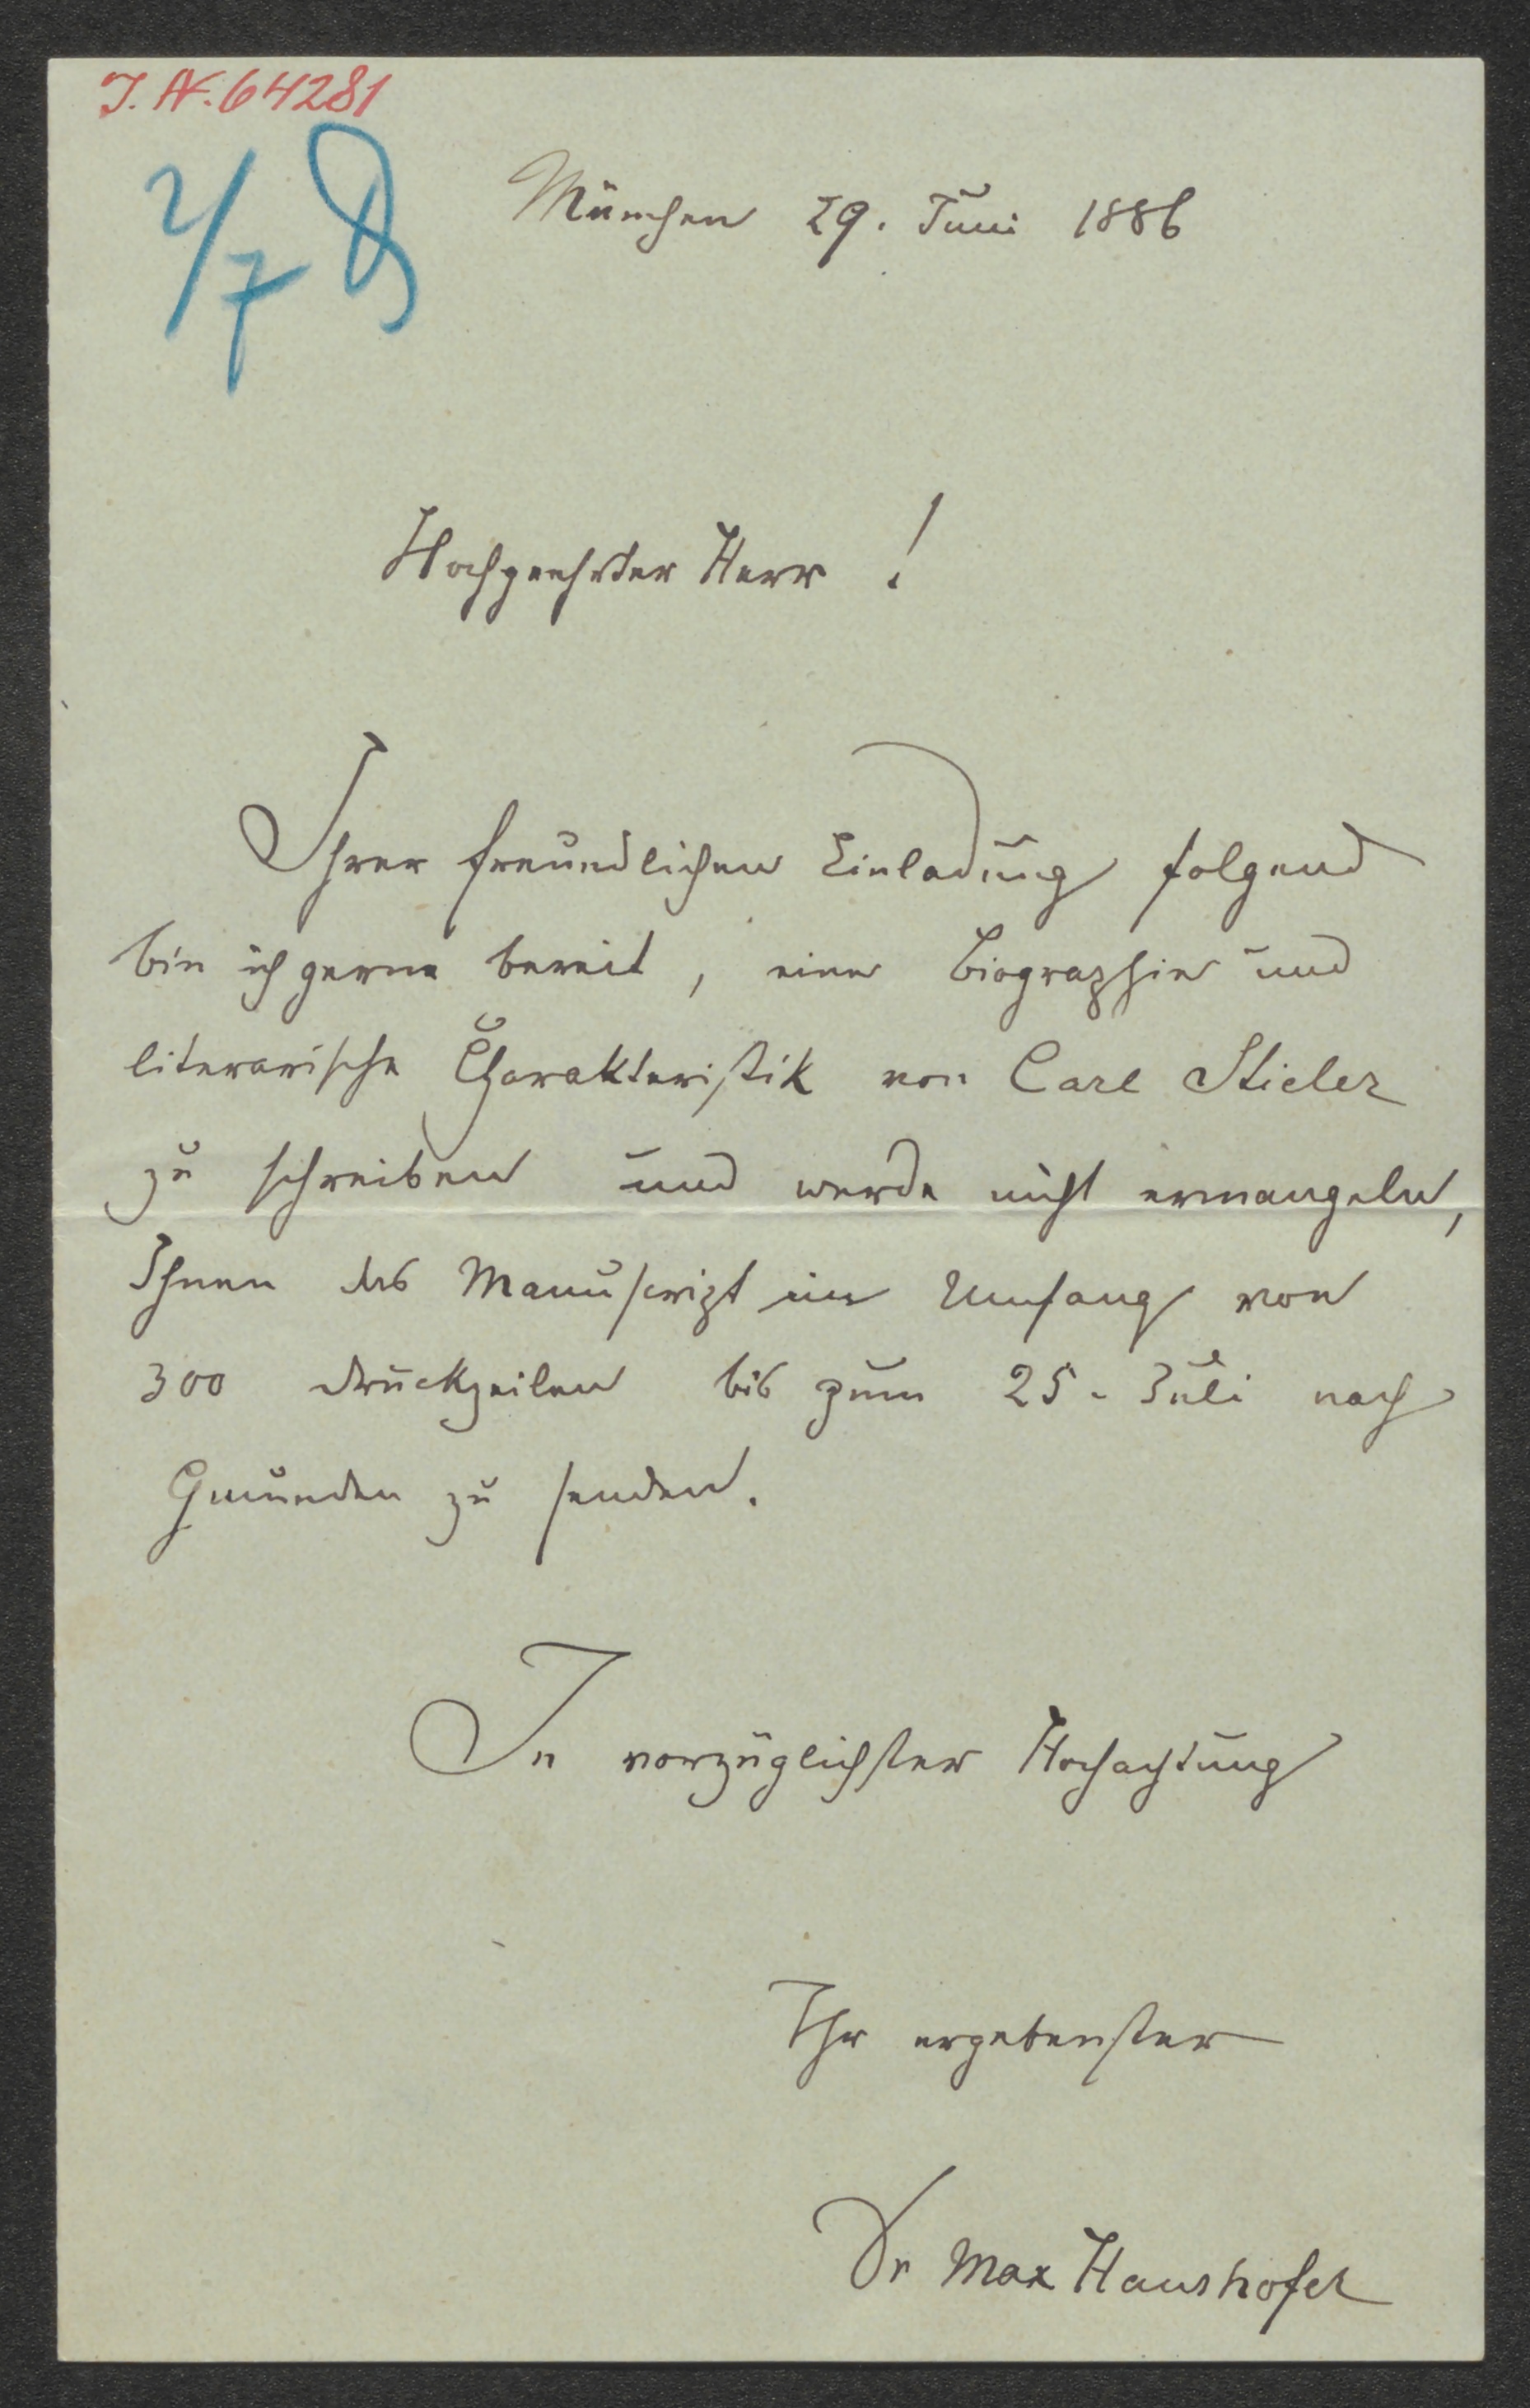 I. N. 64281
2/7
München 29. Juni 1886
Hochgeehrter Herr !
Ihrer freundlichen Einladung folgend
bin ich gerne bereit, eine Biographie und
literarische Charakteristik von Carl Stieler
zu schreiben und werde nicht ermangeln,
Ihnen das Manuscript im Umfang von
300 Druckzeilen bis zum 25. Juli nach
Gmunden zu senden.
In vorzüglichster Hochachtung
Ihr ergebenster
Dr Max Haushofer